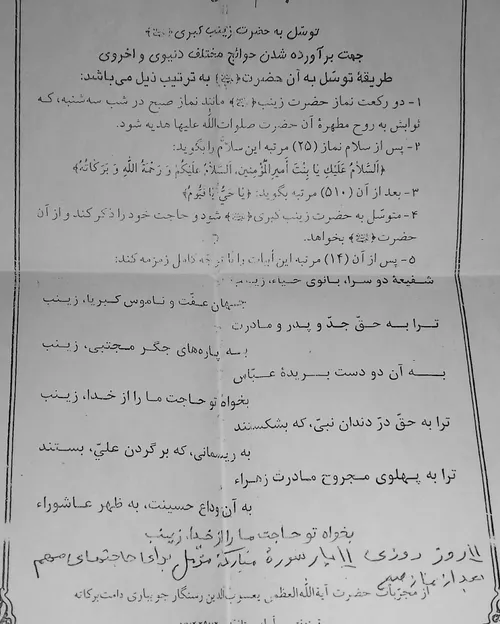 توسّل به حضرت زینب کبری ﴿؏﴾
جهت برآورده شدن حوائج مختلف دنیوی و اخروی
طریقهٔ توسّل به آن حضرت ﴿؏﴾ به ترتیب ذیل می‌باشد:
۱- دو رکعت نماز حضرت زینب ﴿؏﴾ مانند نماز صبح در شب سه‌شنبه، که
ثوابش به روح مطهرهٔ آن حضرت صلوات‌الله علیها هدیه شود.
۲- پس از سلام نماز (۲۵) مرتبه این سلام را بگوید:
﴿اَلسَّلامُ عَلَیْكِ یَا بِنْتَ أَمیرِالْمُؤْمِنین، اَلسَّلامُ عَلَیْكُمْ وَ رَحْمَةُ اللهِ وَ بَرَكاتُهُ﴾
۳- بعد از آن (۵۱۰) مرتبه بگوید: ﴿یا حَیُّ یا قَیُّومُ﴾
۴- متوسّل به حضرت زینب کبری ﴿؏﴾ شود و حاجت خود را ذکر کند و از آن
حضرت ﴿؏﴾ بخواهد.
۵- پس از آن (۱۴) مرتبه این أبیات را با توجّه کامل زمزمه کند:
شفیعهٔ دو سرا، بانوی حیاء، زینب
جهان عفّت و ناموس کبریا، زینب
ترا به حقّ جدّ و پدر و مادرت
به پاره‌های جگر مجتبی، زینب
به آن دو دست بریدهٔ عبّاس
بخواه تو حاجت ما را از خدا، زینب
ترا به حقّ درّ دندان نبیّ، که بشکستند
به ریسمانی، که بر گردن علیّ، بستند
ترا به پهلوی مجروح مادرت زهراء
به آن وداع حسینت، به ظهر عاشوراء
بخواه تو حاجت ما را از خدا، زینب
۱۱ روز روزی ۱۱ بار سورهٔ مبارکهٔ مزّمل برای حاجتهای مهم
بعد از نماز صبح
از مجرّبات حضرت آیة‌الله‌العظمی یعسوب‌الدین رستگار جویباری دامت‌برکاته